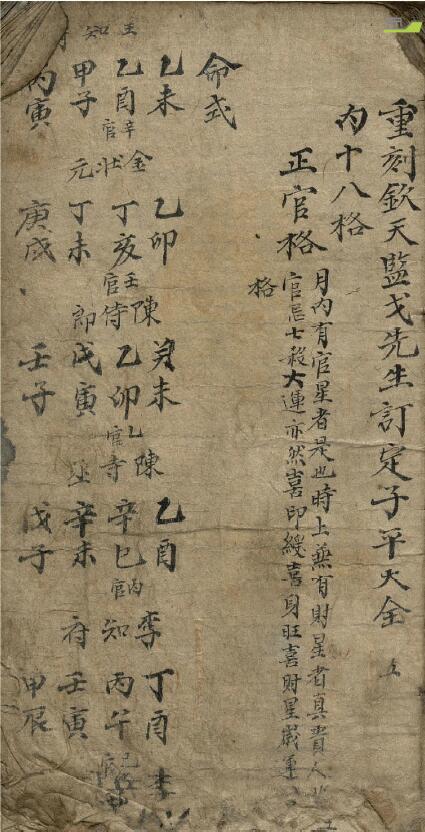 重刻欽天監戈先生訂定子平大全
内十八格
正官格
月内有官星者是也時上兼有財星者真貴人
官忌七殺大運亦然喜印綬喜身旺喜財星歲運
格
命式
乙未 乙卯 癸未 乙酉 丁酉
金 陳 陳 李 李
乙酉 丁亥 乙卯 辛巳 丙午
辛官 壬官 乙官 丙官
狀 侍 寺 知
甲子 丁未 戊寅 辛未 壬寅
元 郎 丞 府
丙寅 庚戌 壬子 戊子 甲辰
王 知